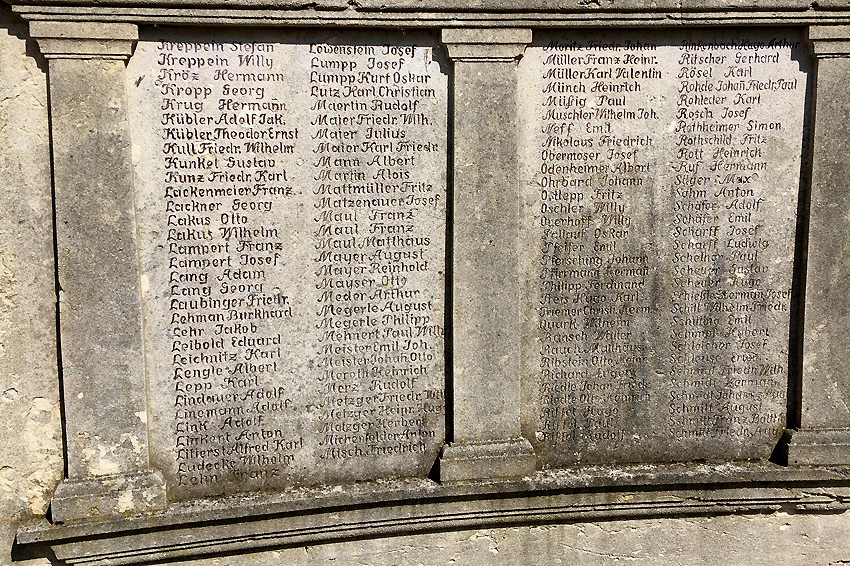 Kreppein Stefan
Kreppein Willy
Kröz Hermann
Kropp Georg
Krug Hermann
Kübler Adolf Jak.
Kübler Theodor Ernst
Kull Friedr. Wilhelm
Kunkel Gustav
Kunz Friedr. Karl
Lackenmeier Franz
Lackner Georg
Lakus Otto
Lakus Wilhelm
Lampert Franz
Lampert Josef
Lang Adam
Lang Georg
Laubinger Friedr.
Lehman Burkhard
Lehr Jakob
Leibold Eduard
Leichnitz Karl
Lengle Albert
Lepp Karl
Lindauer Adolf
Linemann Adolf
Link Adolf
Linkert Anton
Litters Alfred Karl
Ludecke Wilhelm
Lehn Franz
Löwenstein Josef
Lumpp Josef
Lumpp Kurt Oskar
Lutz Karl Christian
Maertin Rudolf
Maier Friedr. Wilh.
Maier Julius
Maier Karl Friedr.
Mann Albert
Martin Alois
Mattmüller Fritz
Matzenauer Josef
Maul Franz
Maul Franz
Maul Matthäus
Mayer August
Mayer Reinhold
Mayser Otto
Meder Arthur
Megerle August
Megerle Philipp
Mehnert Paul Wilh
Meister Emil Joh.
Meister Johan Otto
Meroth Heinrich
Merz Rudolf
Metzger Friedr. Wilh
Metzger Heinr. Hugo
Metzger Herbert
Michenfelder Anton
Misch Friedrich
Moritz Friedr. Johan
Müller Franz Heinr.
Müller Karl Valentin
Münch Heinrich
Müßig Paul
Muschler Wilhelm Joh.
Neff Emil
Nikolaus Friedrich
Obermoser Josef
Odenheimer Albert
Ohrbard Johann
Ostlepp Fritz
Oschler Willy
Overhoff Willy
Oskar
Pfeffer Emil
Pfersching Johann
Pfirmann Herman
Philipp Ferdinand
Preis Hugo Karl
Priemer Christ. Herm.
Quark Wilhelm
Raasch Walter
Rauch Matthäus
Ribstein Otto Heinr.
Richard August
Riedle Johan Friedr
Riedle Otto Heinrich
Riffel Hugo
Riffel Paul
Riffel Rudolf
Rinkenbach Hugo Arthur
Ritscher Gerhard
Rösel Karl
Rohde Johan Friedr. Paul
Rohleder Karl
Rosch Josef
Rothheimer Simon
Rothschild Fritz
Rott Heinrich
Ruf Hermann
Säger Max
Sahm Anton
Schäfer Adolf
Schäfer Emil
Scharff Josef
Scharff Ludwig
Schelher Paul
Scheuer Gustav
Scheuer Hugo
Schießle Herman Josef
Schill Wilhelm Friedr.
Schilling Emil
Herbert
Josef
Schmidt Friedr. Wilh
Schmidt Hermann
Schmidt Johannes
Schmitt August
Schmitt Franz
Schmitt Friedr.